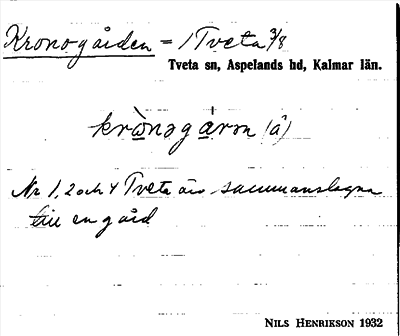 Kronogården = 1 Tveta 3/8
Tveta sn, Aspelands hd, Kalmar län.
krὼnɔgårn (å)
Nr 1, 2 och 4 Tveta äro sammanslagna
till en gård
NILS HENRIKSON 1932